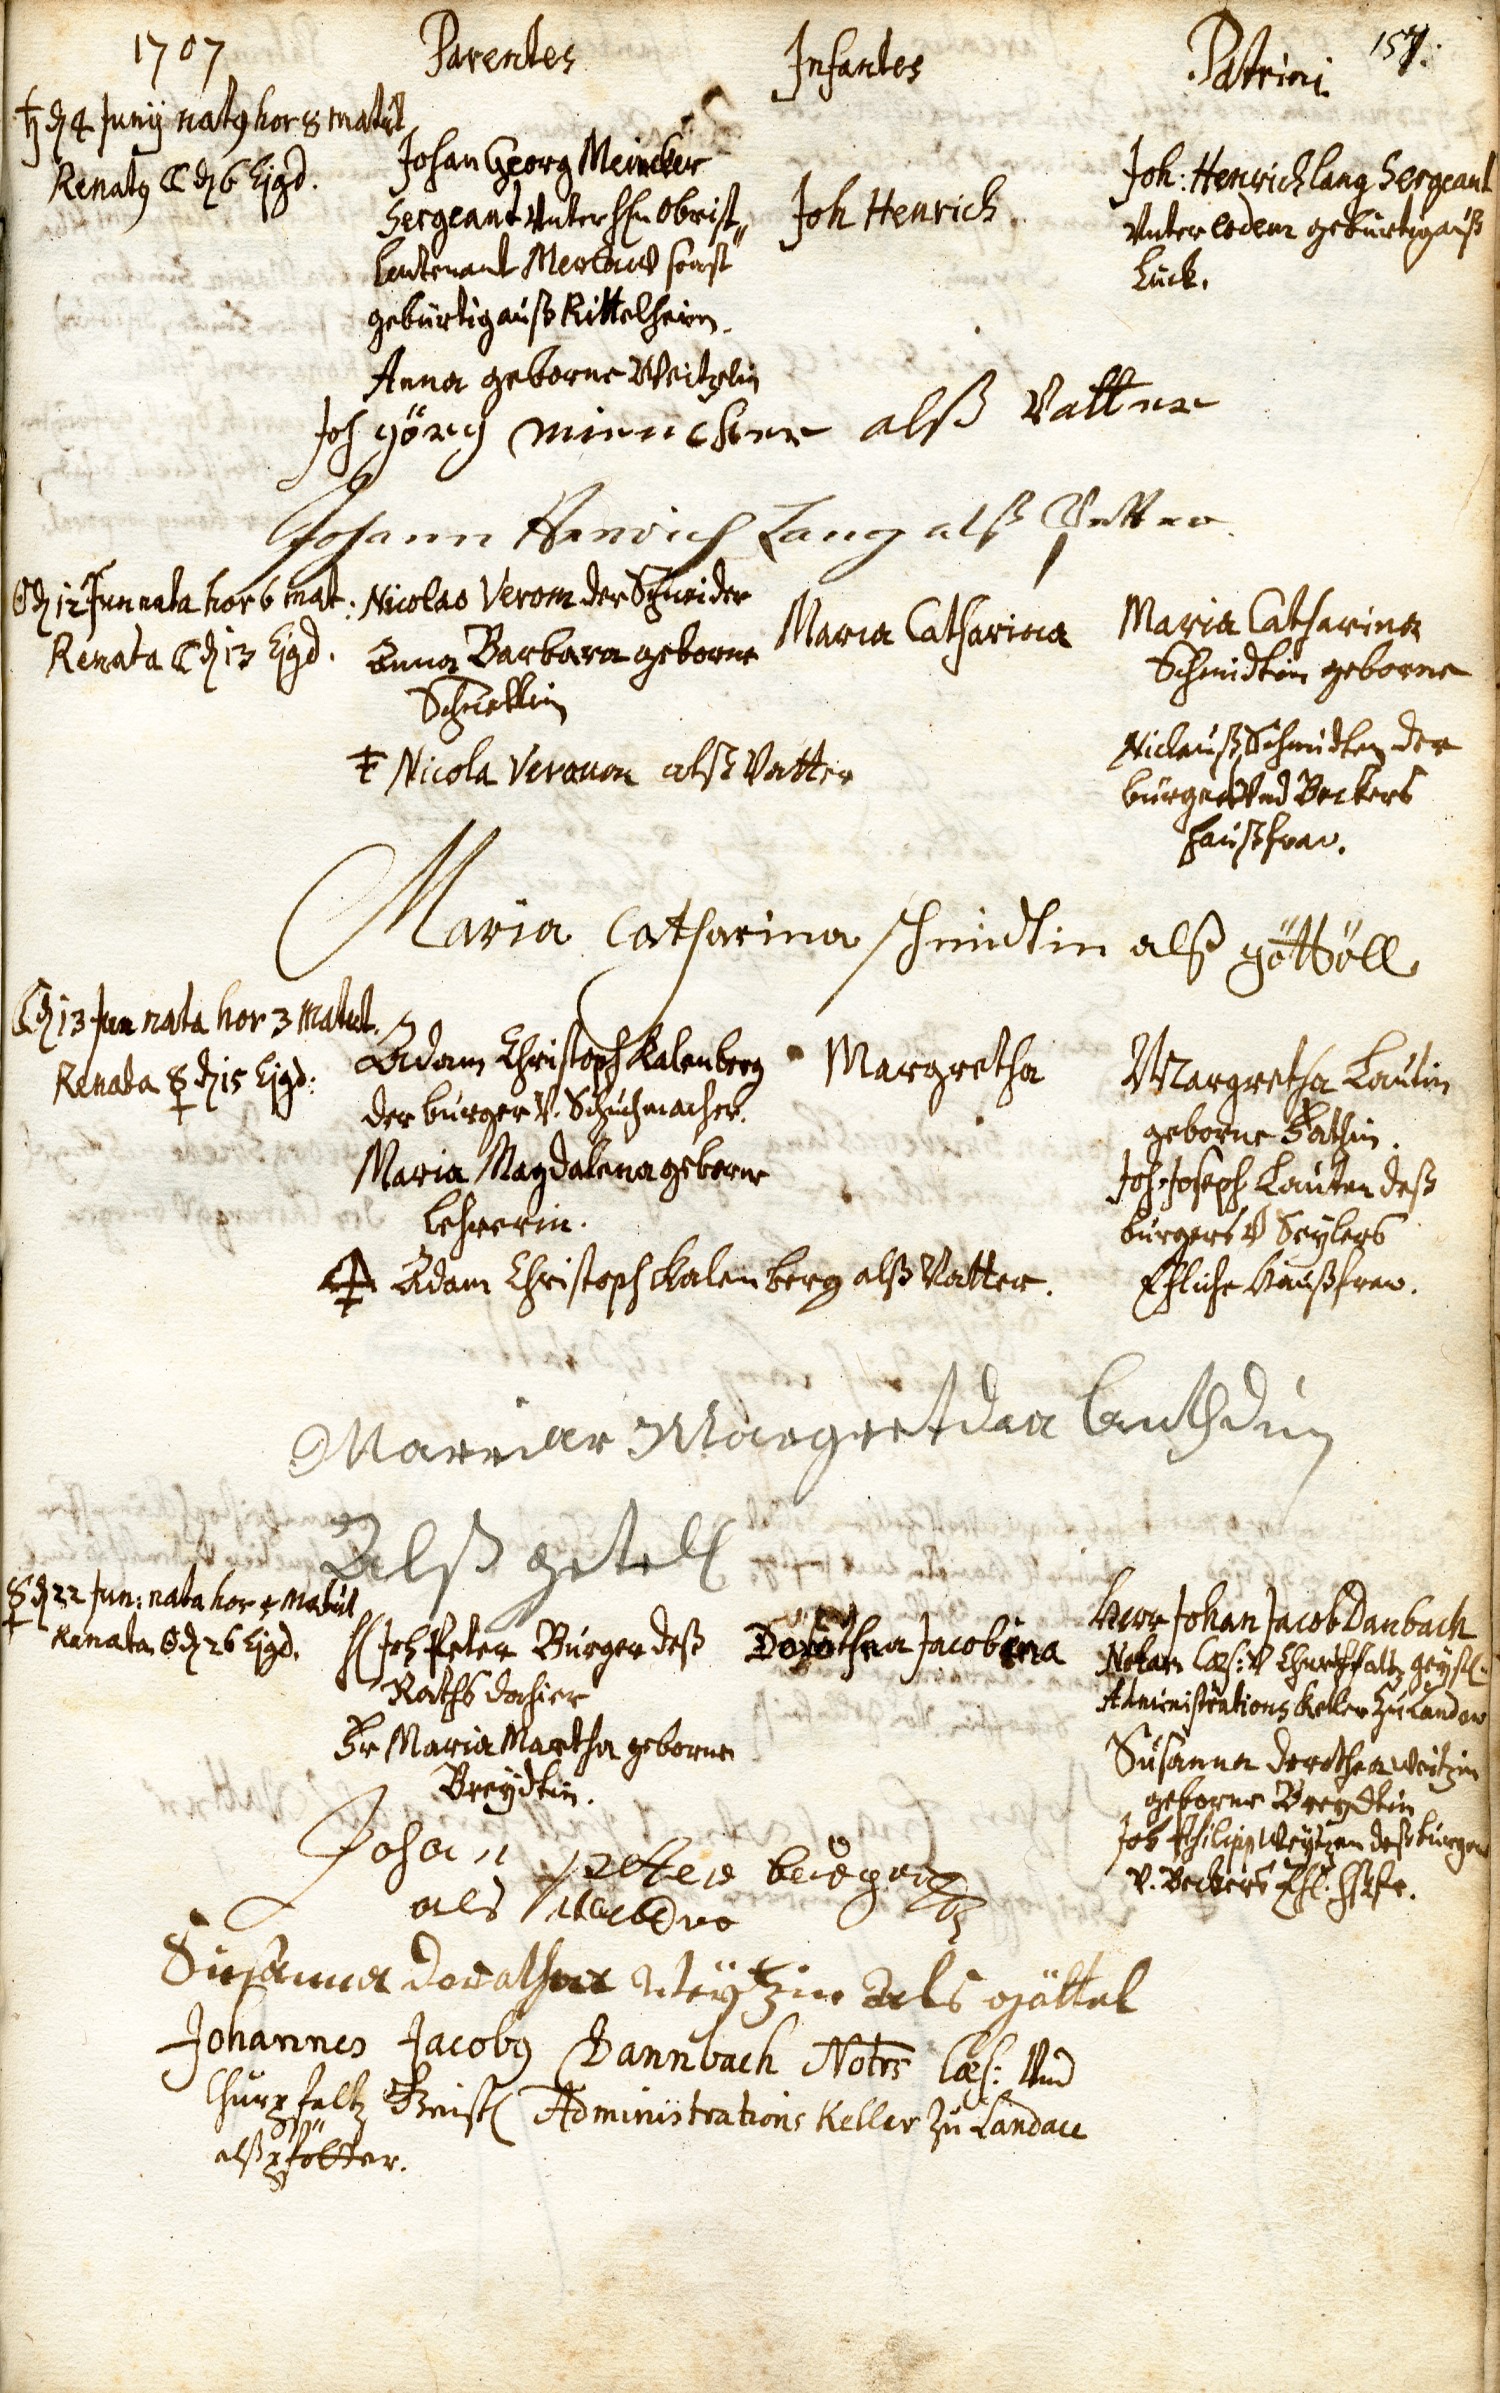 1707 Parentes Infantes Patrini 157.
♄ d 4 Junij natꝰ hor 8 matut
Renatꝰ ☾ d 6 Ejgd.
Johan Georg Meincker
Sergeant Unter Hn Obrist
leutenant
gebürtig auß Rittelheim.
Anna geborne Weitzelin
Joh Henrich.
Joh: Henrich lang Sergeant
Unter eodem gebürtig auß
Luck.
Joh görg miencker alß Vatter
Johann Henrich Lang alß Petter
☉ d 12 Jun nata hor 6 mat:
Renata ☾ d 13 Ejgd.
Nicolas Verom der Schneider
Anna Barbara geborne
Schnellin
Maria Catharina
Maria Catharina
Schmidtin geborne
Niclauß Schmidten der
bürgers Und Beckers
haußfraw.
Nicola Veroum alß Vatter
Maria Catharina schmidtin alß göttöll
☾ d 13 Jun nata hor 3 matut.
Renata ☿ d 15 Ejgd:
Adam Christoph Kalenberg
der burger V. Schuchmacher.
Maria Magdalena geborne
Lehrerin.
Margretha
Margretha Lautin
geborne
Joh. Joseph Lauten deß
burgers V Seylers
Ehliche Haußfraw.
Adam Christoph Kalenberg alß Vatter.
Margretdaa
Alß getell
☿ d 22 Jun: nata hor 4 Matut
Renata ☉ d 26 Ejgd.
H Joh Peter Burger deß
Raths dahier
Fr Maria Martha geborne
Breydtin.
Dorothea Jacobina
Herr Johan Jacob Danbach
Notar. Cæs: V Churpfaltz geystl:
Administrations Keller zu Landaw
Susanna dorothea weitzin
geborne Breydtin
Joh Philipp Weytzen deß burgers
V. Beckers Ehl: Hßfr.
Johan petter burger
als
Susanna dorathea Weytzin als göttel
Johannes Jacobꝰ Dannbach Notrs Cæs: Und
Churpfaltz Geistl Administrations Keller zu Landau
alß pfötter.